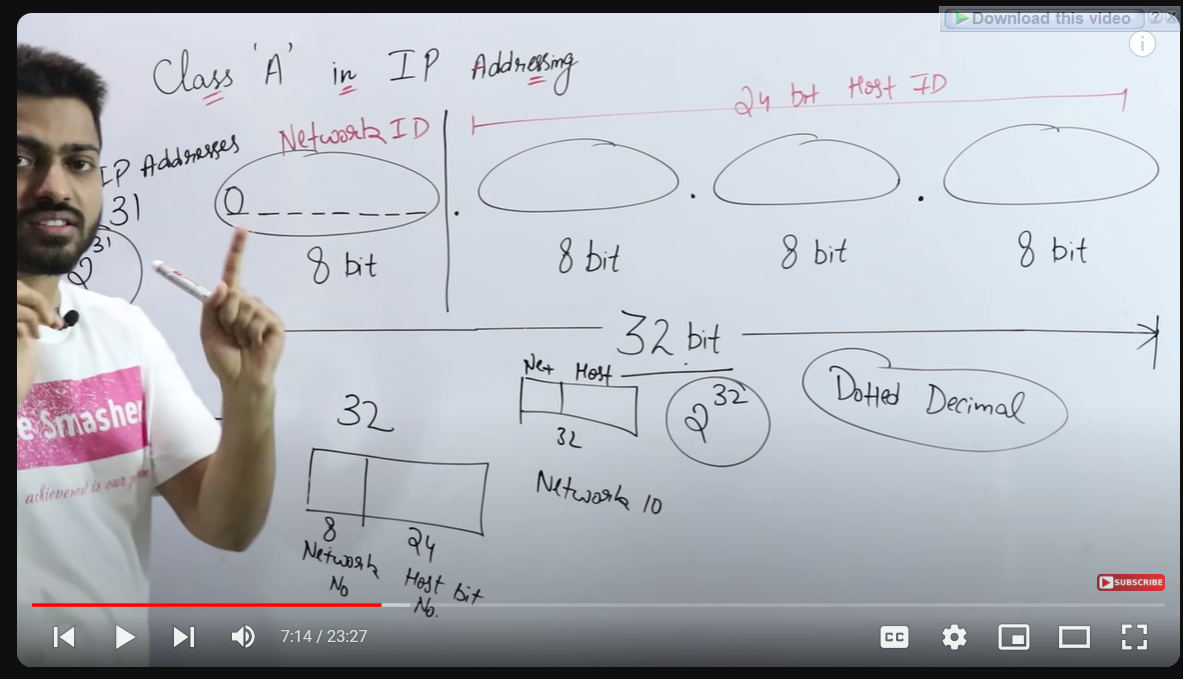 Download this video
Class 'A' in IP Addressing
24 bit Host ID
Network ID
IP Addresses
31
0 _ _ _ _ _ _ _ . . .
2 31
8 bit 8 bit 8 bit 8 bit
32 bit
Net Host
32
2 32
Dotted Decimal
32
Network ID
8 24
Network No
Host bit No.
e Smasher
achievement is our
SUBSCRIBE
7:14 / 23:27
CC